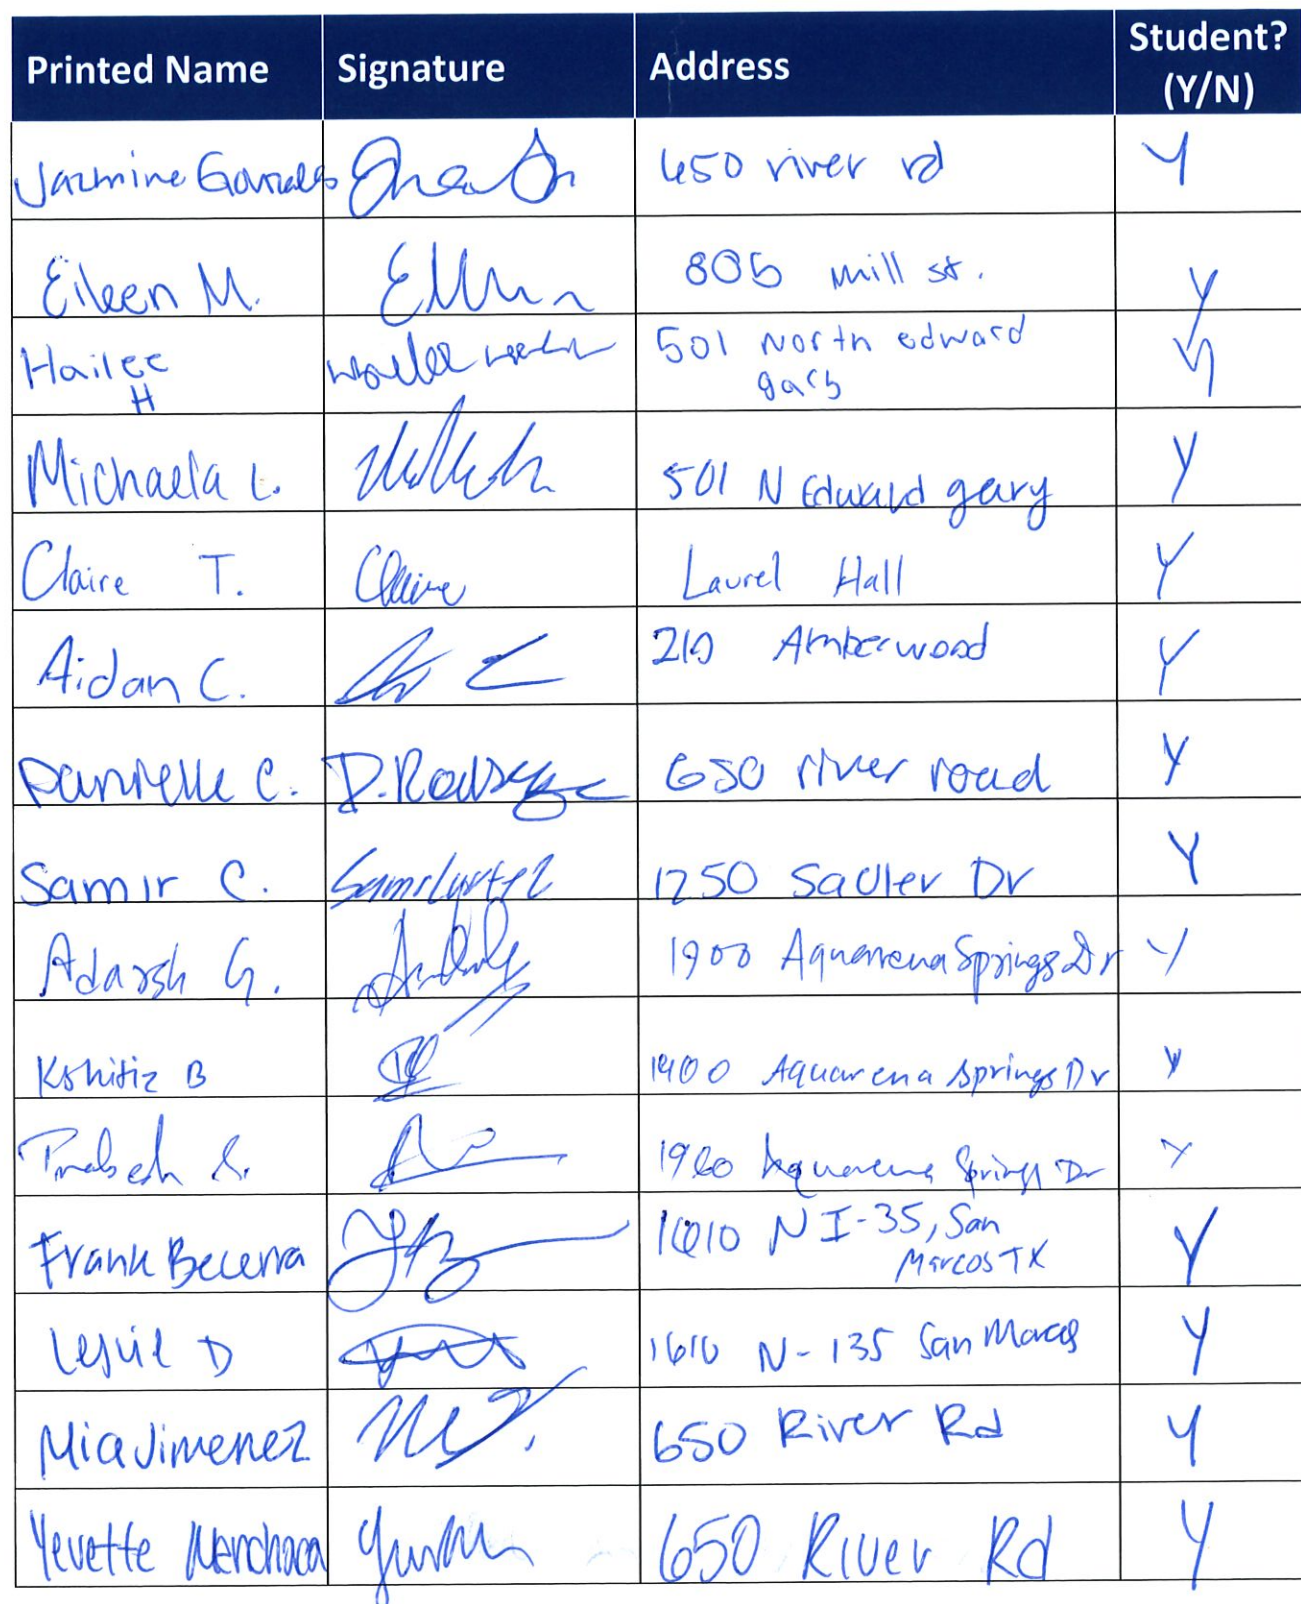 Printed Name Signature Address Student? (Y/N)
Jazmine Gonzales 650 river rd Y
Eileen M. 805 mill st. Y
Hailee H 501 North edward gary Y
Michaela L. 501 N Edward gary Y
Claire T. Claire Laurel Hall Y
Aidan C. 210 Amberwood Y
Danielle C. 650 river road Y
Samir C. 1250 Sadler Dr Y
Adarsh G. 1900 Aquarena Springs Dr Y
Kshitiz B 1900 Aquarena Springs Dr Y
S. 1900 Aquarena Springs Dr Y
Frank Becerra 1610 N I-35, San Marcos TX Y
Leslie D 1610 N-I35 San Marcos Y
Mia Jimenez 650 River Rd Y
Yevette Menchaca 650 River Rd Y